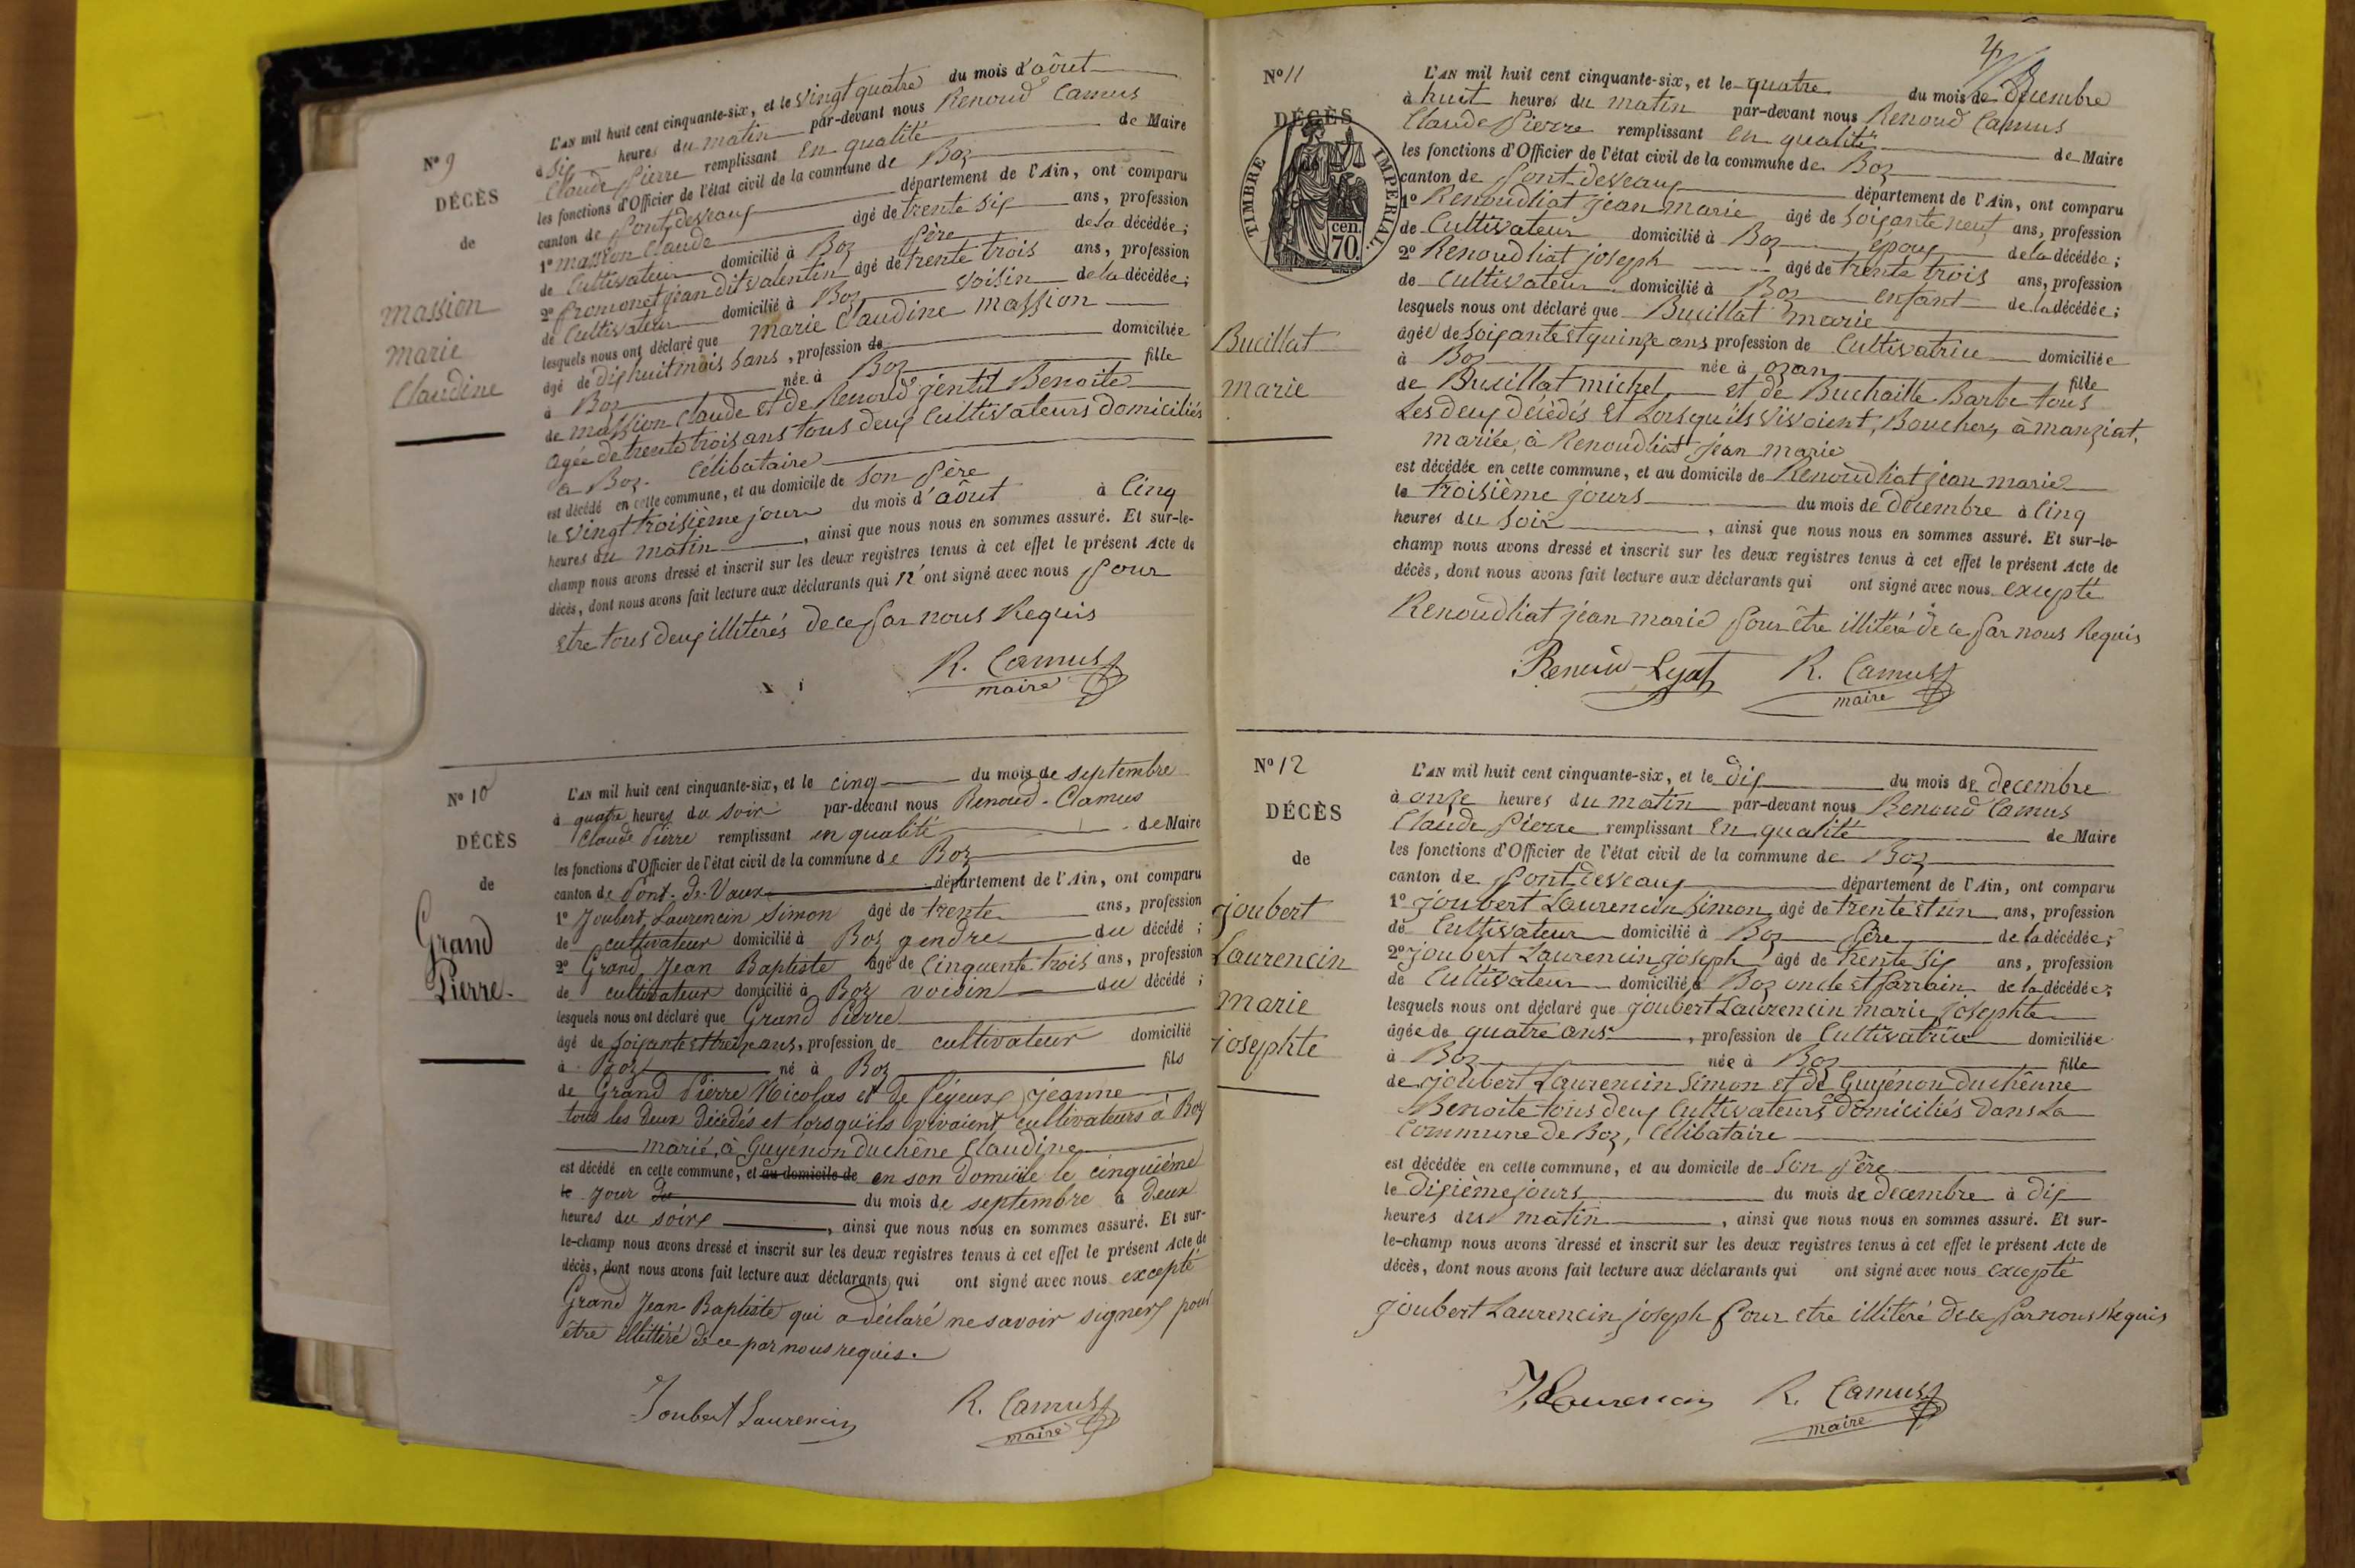 N° 9
DÉCÈS
de
massion
marie
Claudine
L'AN mil huit cent cinquante-six, et le vingt quatre du mois d'aôut
à six heures du matin par-devant nous Renoud Camus
Claude Pierre remplissant en qualité de Maire
les fonctions d'Officier de l'état civil de la commune de Boz
canton de Pontdevaux département de l'Ain, ont comparu
1° massion Claude âgé de trente six ans, profession
de Cultivateur domicilié à Boz Père de la décédée;
2° Promonet jean dit valentin âgé de trente trois ans, profession
de Cultivateur domicilié à Boz voisin de la décédée;
lesquels nous ont déclaré que marie Claudine massion
âgé de dix huit mois sans, profession de domiciliée
à Boz née à Boz fille
de massion Claude et de Renoud gentil Benoite
agée de trente trois ans tous deux Cultivateurs domiciliés
a Boz. Célibataire
est décédé en cette commune, et au domicile de son Père
le vingt troisième jour du mois d'aôut à Cinq
heures du matin, ainsi que nous nous en sommes assuré. Et sur-le-
champ nous avons dressé et inscrit sur les deux registres tenus à cet effet le présent Acte de
décès, dont nous avons fait lecture aux déclarants qui n'ont signé avec nous Pour
Etre tous deux illitérés de ce Par nous Requis
R. Camus
maire
N° 10
DÉCÈS
de
Grand
Pierre
L'AN mil huit cent cinquante-six, et le cinq du mois de septembre
à quatre heures du soir par-devant nous Renoud-Camus
Claude Pierre remplissant en qualité de Maire
les fonctions d'Officier de l'état civil de la commune de Boz
canton de Pont-de-Vaux département de l'Ain, ont comparu
1° Joubert Laurencin Simon âgé de trente ans, profession
de cultivateur domicilié à Boz gendre du décédé;
2° Grand Jean Baptiste âgé de Cinquente trois ans, profession
de cultivateur domicilié à Boz voisin du décédé;
lesquels nous ont déclaré que Grand Pierre
âgé de soixante et treize ans, profession de cultivateur domicilié
à Boz né à Boz fils
de Grand Pierre Nicolas et de jeanne
tous les deux décédés et lorsqu'ils vivaient cultivateurs à Boz
marié, à Guyénon duchêne Claudine
est décédé en cette commune, et au domicile de en son domicile le cinquième
le jour du du mois de septembre à deux
heures du soire, ainsi que nous nous en sommes assuré. Et sur-
le-champ nous avons dressé et inscrit sur les deux registres tenus à cet effet le présent Acte de
décès, dont nous avons fait lecture aux déclarants qui ont signé avec nous excepté
Grand Jean-Baptiste qui a déclaré ne savoir signer pour
être illettré de ce par nous requis.
Joubert Laurencin R. Camus
maire
N° 11
DÉCÈS
TIMBRE IMPERIAL.
cen.
70
Bucillat
marie
L'AN mil huit cent cinquante-six, et le quatre du mois de Decembre
à huit heures du matin par-devant nous Renoud Camus
Claude Pierre remplissant En qualité de Maire
les fonctions d'Officier de l'état civil de la commune de Boz
canton de Pontdevaux département de l'Ain, ont comparu
1° Renoudliat jean marie âgé de soixante neuf ans, profession
de Cultivateur domicilié à Boz epoux de la décédée;
2° Renoudliat joseph âgé de trente trois ans, profession
de Cultivateur domicilié à Boz enfant de la décédée;
lesquels nous ont déclaré que Bucillat marie
âgée de soixante et quinze ans profession de Cultivatrice domiciliée
à Boz née à ozan fille
de Bucillat michel et de Buchaille Barbe tous
Les deux décédés et Lorsqu'ils vivoient, Bouchers, à manziat,
mariée, à Renoudliat jean marie
est décédée en cette commune, et au domicile de Renoudliat jean marie
le troisième jours du mois de decembre à Cinq
heures du soir, ainsi que nous nous en sommes assuré. Et sur-le-
champ nous avons dressé et inscrit sur les deux registres tenus à cet effet le présent Acte de
décès, dont nous avons fait lecture aux déclarants qui ont signé avec nous excepté
Renoudliat jean marie Pour être illitéré de ce Par nous Requis
Renoud-Lyat R. Camus
maire
N° 12
DÉCÈS
de
joubert
Laurencin
marie
josephte
L'AN mil huit cent cinquante-six, et le dix du mois de decembre
à onze heures du matin par-devant nous Renoud Camus
Claude Pierre remplissant En qualité de Maire
les fonctions d'Officier de l'état civil de la commune de Boz
canton de Pontdevaux département de l'Ain, ont comparu
1° joubert Laurencin Simon âgé de trente et un ans, profession
de Cultivateur domicilié à Boz Père de la décédée;
2° joubert Laurencin joseph âgé de trente six ans, profession
de Cultivateur domicilié à Boz oncle et Parrain de la décédée;
lesquels nous ont déclaré que joubert Laurencin marie josephte
âgée de quatre ans, profession de Cultivatrice domiciliée
à Boz née à Boz fille
de joubert Laurencin Simon et de Guyénon duchêune
Benoite tous deux Cultivateurs domiciliés dans La
Commune de Boz, Célibataire
est décédée en cette commune, et au domicile de Son Père
le dixième jours du mois de decembre à dix
heures du matin, ainsi que nous nous en sommes assuré. Et sur-
le-champ nous avons dressé et inscrit sur les deux registres tenus à cet effet le présent Acte de
décès, dont nous avons fait lecture aux déclarants qui ont signé avec nous excepté
joubert Laurencin joseph Pour etre illitéré de ce Par nous Requis
J Laurencin R. Camus
maire